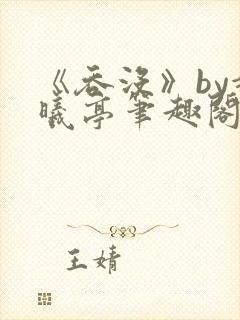 《吞没》by
曦亭笔趣阁
王婧